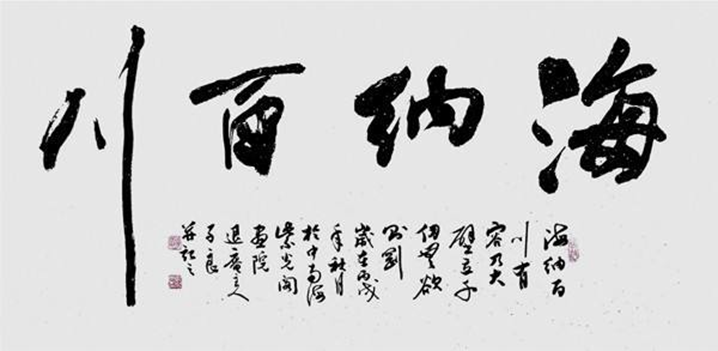 海纳百川
海纳百
川有
容乃大
壁立千
仞无欲
则刚
岁在丙戌
年秋月
於中南海
紫光阁
画院
退庵主人
子良
并记之